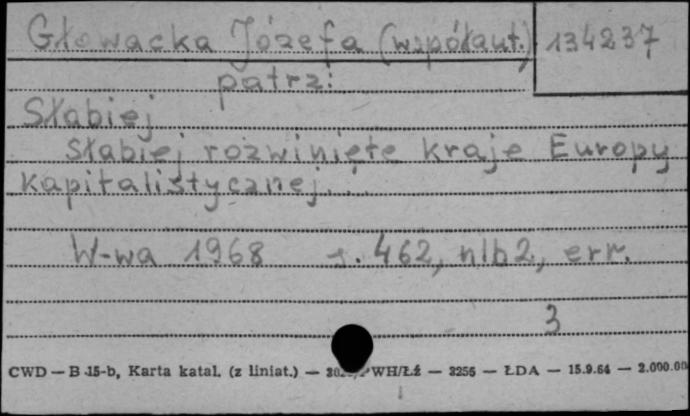 Głowacka Józefa (współaut.) 134237
patrz:
Słabiej
Słabiej rozwinięte kraje Europy
kapitalistycznej...
W-wa 1968 s. 462, nlb 2, err.
3
CWD — B-15-b, Karta katal. (z liniat.) — WH/ŁŹ — 3256 — ŁDA — 15.9.64 — 2.000.00